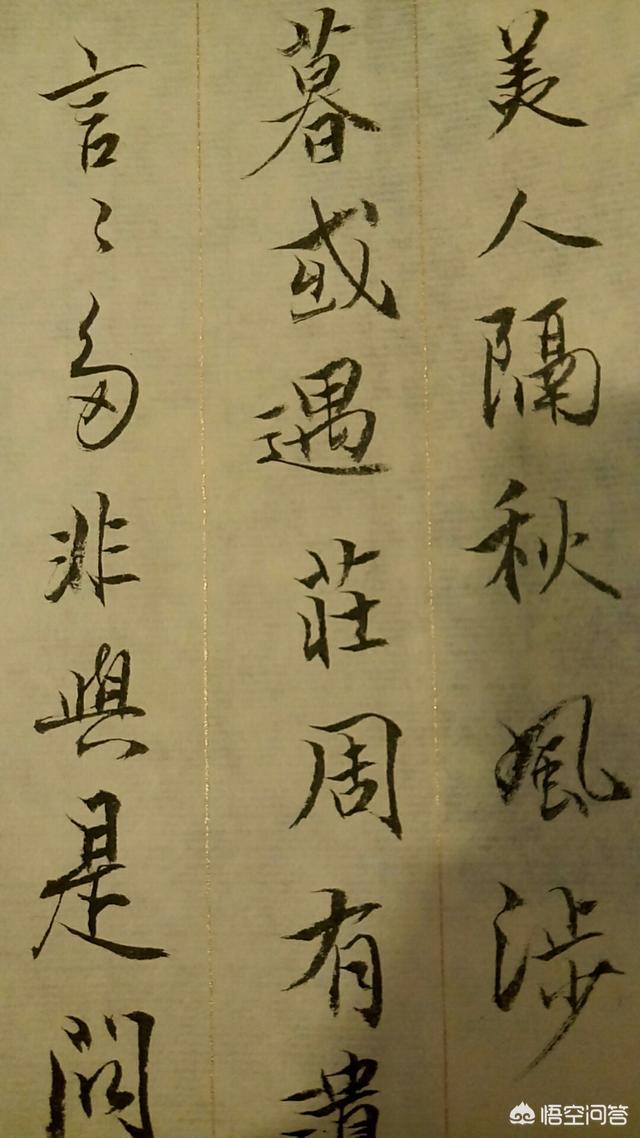 美人隔秋風涉
暮或遇莊周有遺
言〻多非與是問
悟空问答